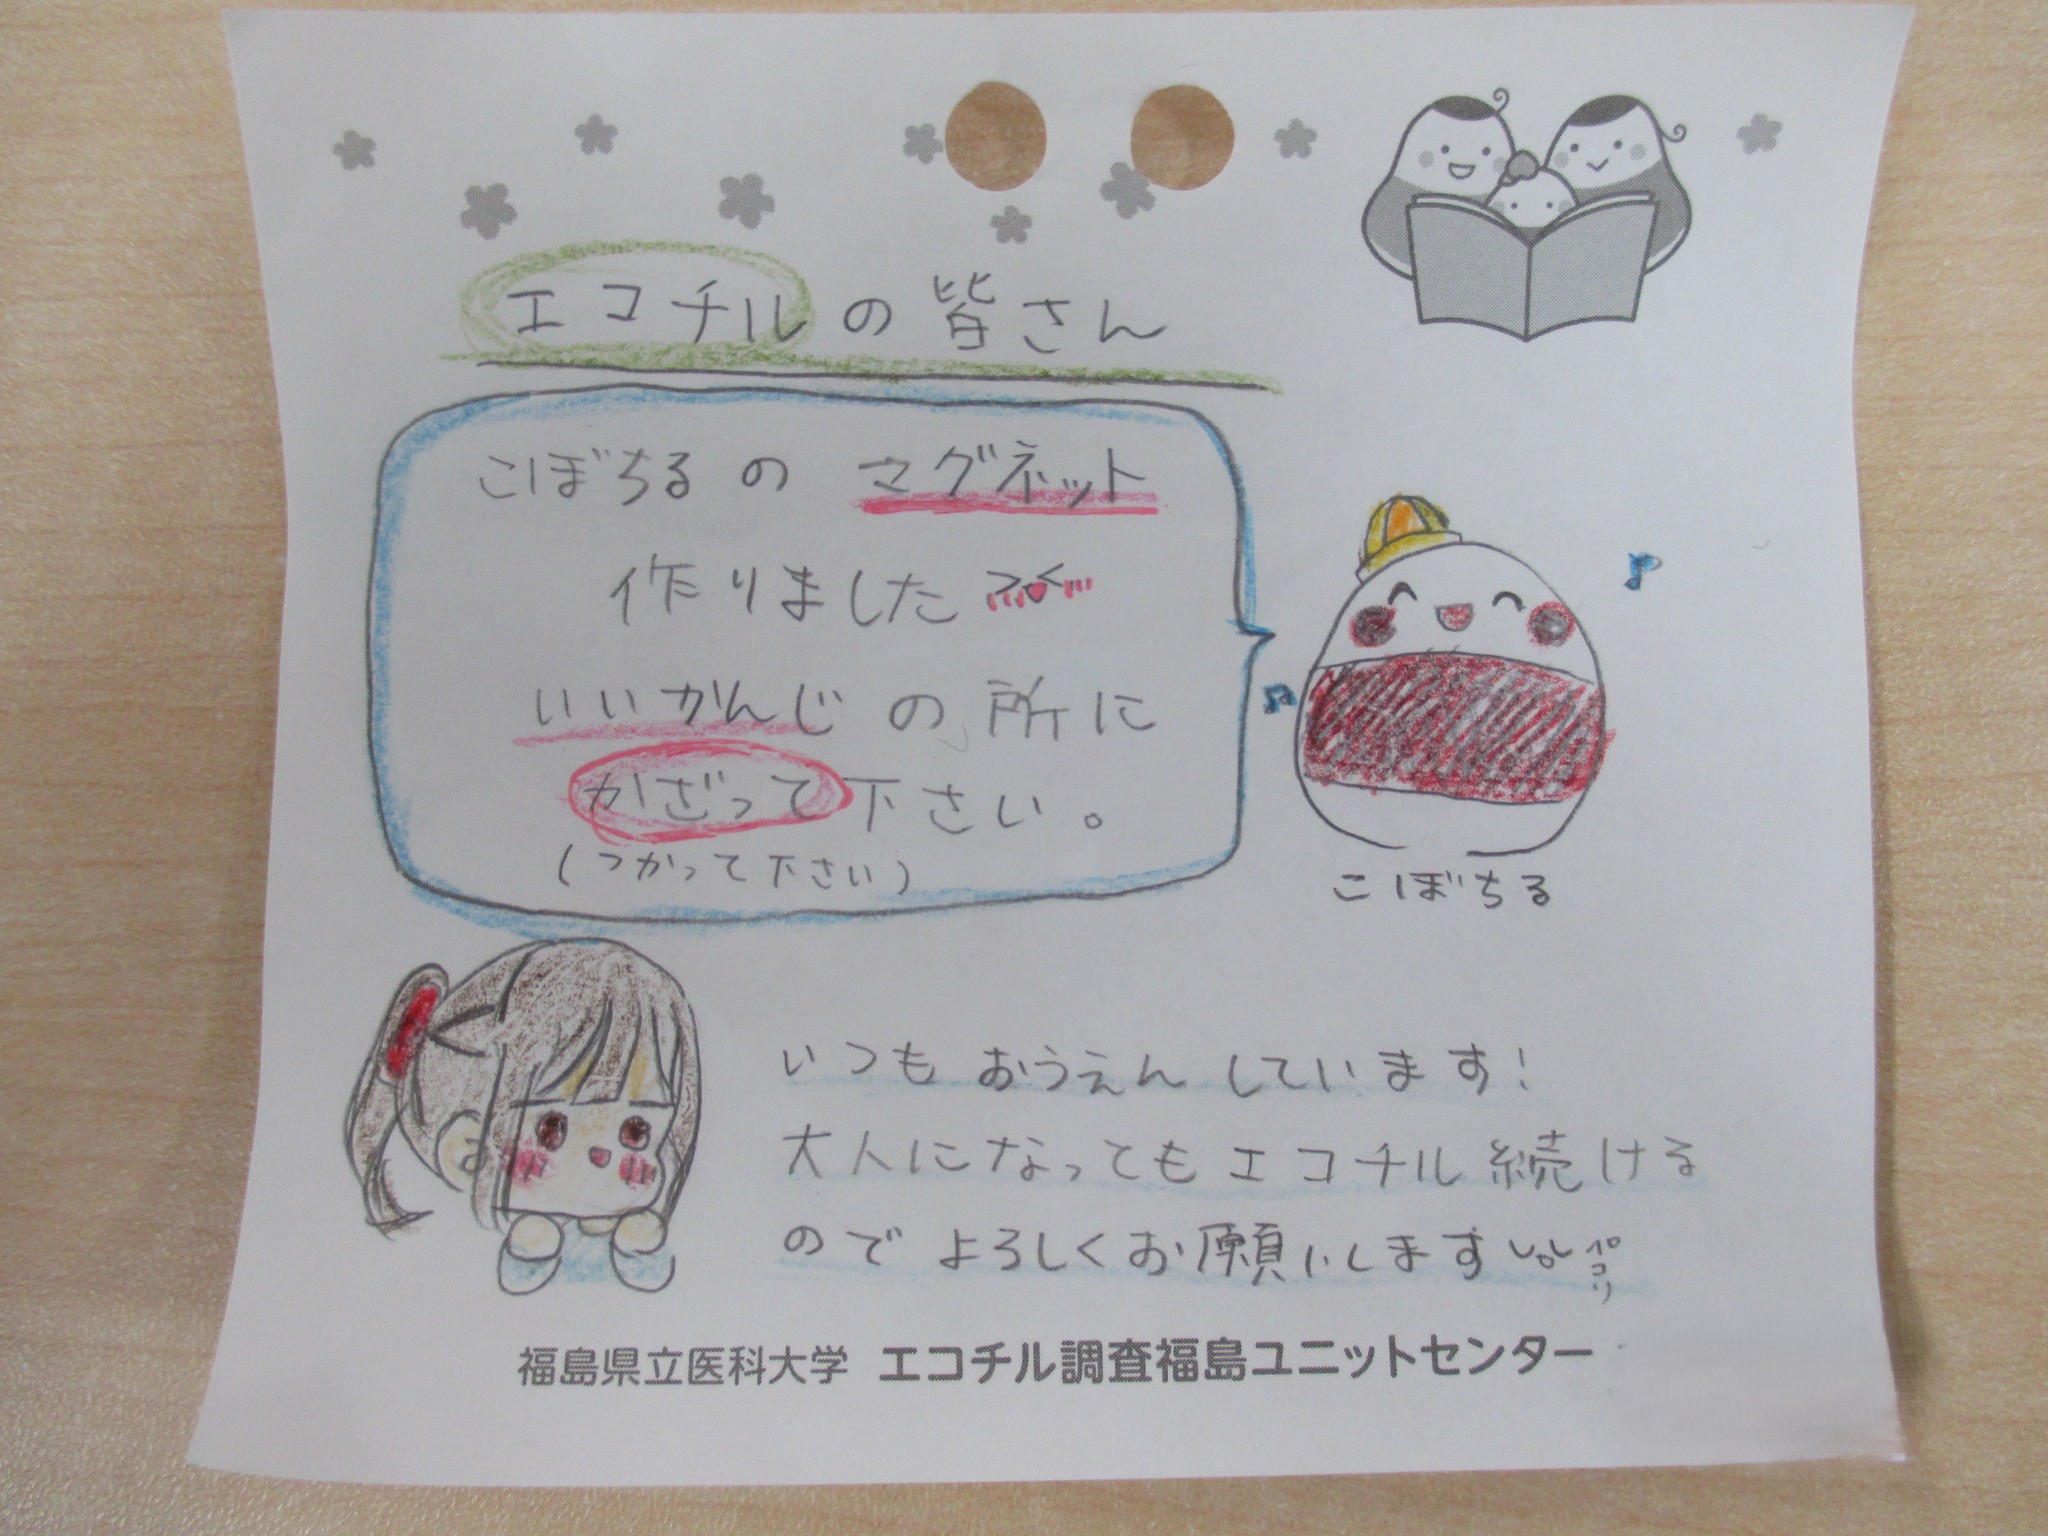 エコチルの皆さん
こぼちるの マグネット
作りました
いいかんじの所に
かざって下さい。
(つかって下さい)
こぼちる
いつもおうえんしています!
大人になってもエコチル続ける
のでよろしくお願いします
ペコリ
福島県立医科大学 エコチル調査福島ユニットセンター